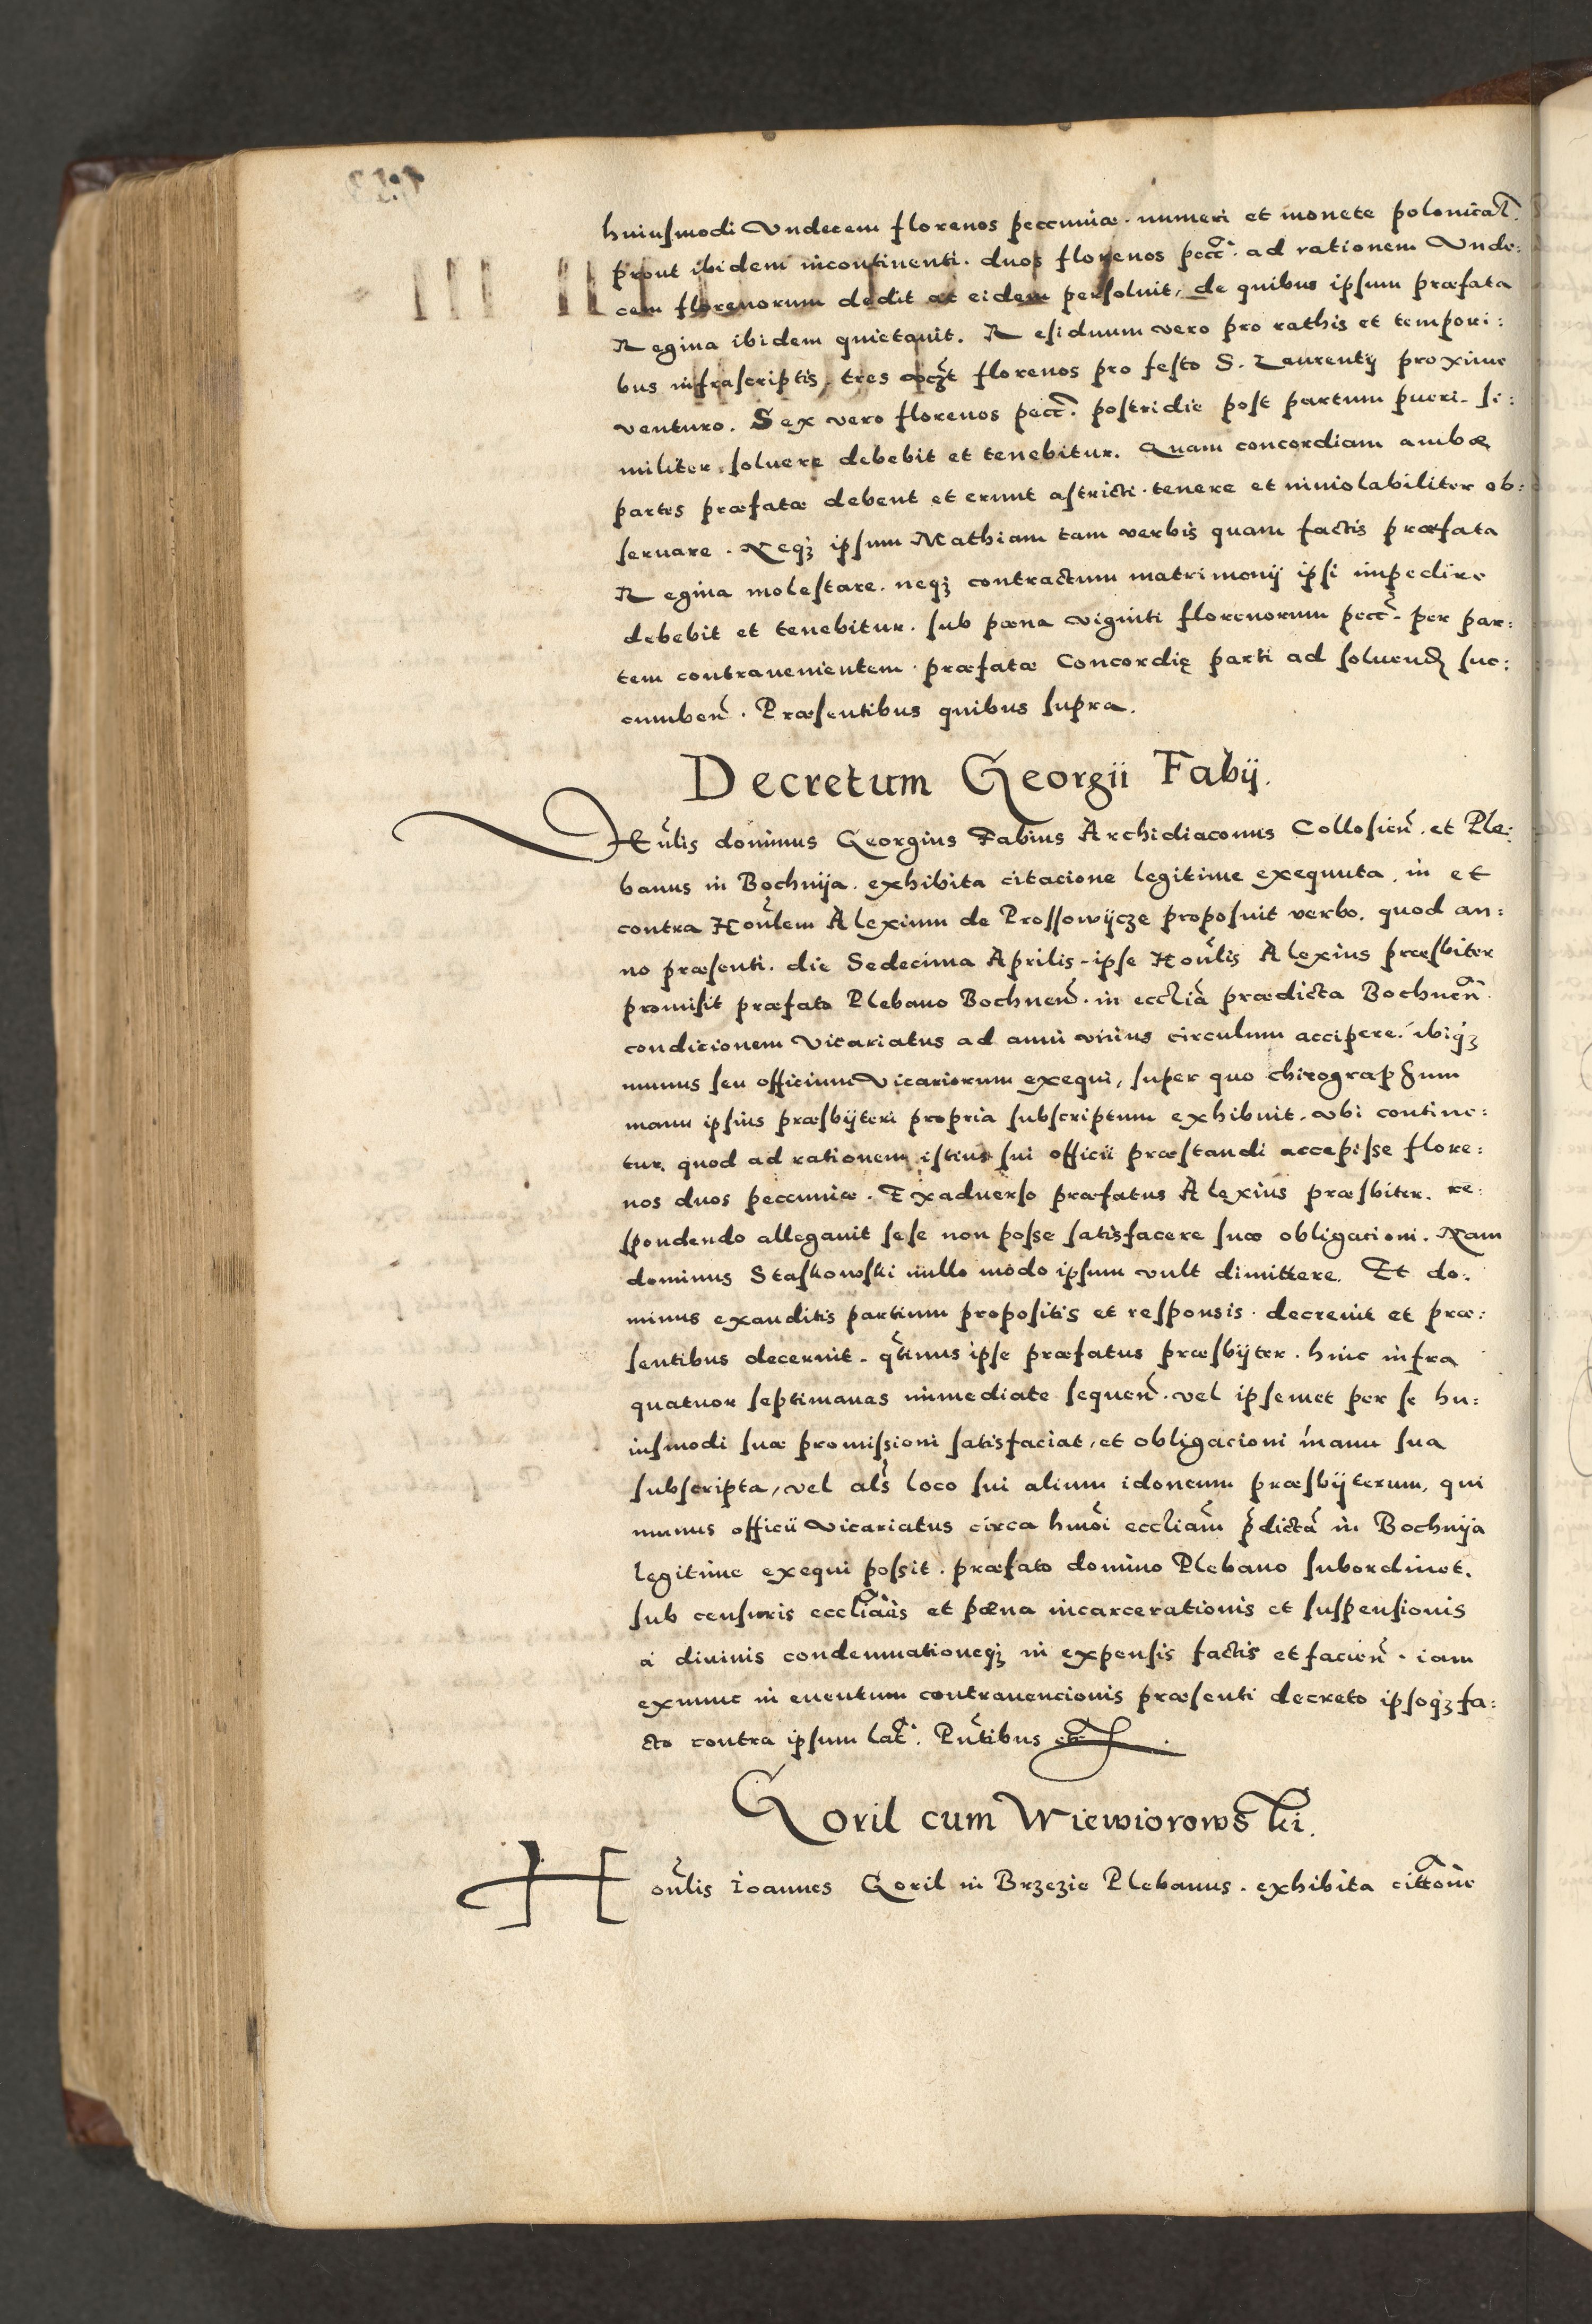 huiusmodi Vndecem florenos peccuniæ. numeri et monete polonical̃.
prout ibidem incontinenti. duos florenos pecc̃. ad rationem Vnde:
cem florenorum dedit at eidem persoluit, de quibus ipsum præfata
Regina ibidem quietauit. Residuum vero pro rathis et tempori:
bus infrascriptis, tres florenos pro festo S. Laurentÿ proxime
venturo. Sex vero florenos pecc̃. postridie post partum pueri. si:
militer. soluere debebit et tenebitur. Quam concordiam ambæ
partes præfatæ debent et erunt astricti. tenere et inuiolabiliter ob:
seruare. Neqꝫ ipsum Mathiam tam verbis quam factis præfata
Regina molestare. neqꝫ contractum matrimonÿ ipsi impedire
debebit et tenebitur. sub pæna viginti florenorum pecc̃. per par:
tem contrauenientem. præfatæ Concordię parti ad soluend̃ suc:
cumben̄. Præsentibus quibus supra.
Decretum Georgii Fabÿ.
Hũlis dominus Georgius Fabius Archidiaconus Collosien̄. et Ple:
banus in Bochnÿa. exhibita citacione legitime exequuta. in et
contra Hoñlem Alexium de Prossowÿcze proposuit verbo. quod an:
no præsenti. die Sedecima Aprilis. ipse Hoñlis Alexius præsbiter
promisit præfato Plebano Bochnen̄. in eccliã prædicta Bochnen̄.
condicionem Vicariatus ad anni vnius circulum accipere. ibiqꝫ
munus seu officium Vicariorum exequi, super quo chirographum
manu ipsius præsbÿteri propria subscriptum exhibuit. vbi contine:
tur. quod ad rationem istius sui officii præstandi accepisse flore:
nos duos peccuniæ. Exaduerso præfatus Alexius præsbiter. re:
spondendo allegauit sese non posse satisfacere suæ obligacioni. Nam
dominus Staskowski nullo modo ipsum vult dimittere. Et do:
minus exauditis partium propositis et responsis. decreuit et præ:
sentibus decernit. q̃tinus ipse præfatus præsbÿter. hinc infra
quatuor septimanas immediate sequen̄. vel ipsemet per se hu:
iusmodi suæ promissioni satisfaciat, et obligacioni manu sua
subscripta, vel al̃s loco sui alium idoneum præsbÿterum, qui
munus officii Vicariatus circa hmõi eccliam̃ p̃dictã in Bochnÿa
legitime exequi possit. præfato domino Plebano subordinet.
sub censuris eccliãis et pæna incarcerationis et suspensionis
a diuinis condemnationeqꝫ in expensis factis et facien̄. iam
exnunc in euentum contrauencionis præsenti decreto ipsoqꝫ fa:
cto contra ipsum lat̃. Pñtibus etc.
Goril cum Wiewiorowski.
Hoñlis Ioannes Goril in Brzezie Plebanus. exhibita cittõne